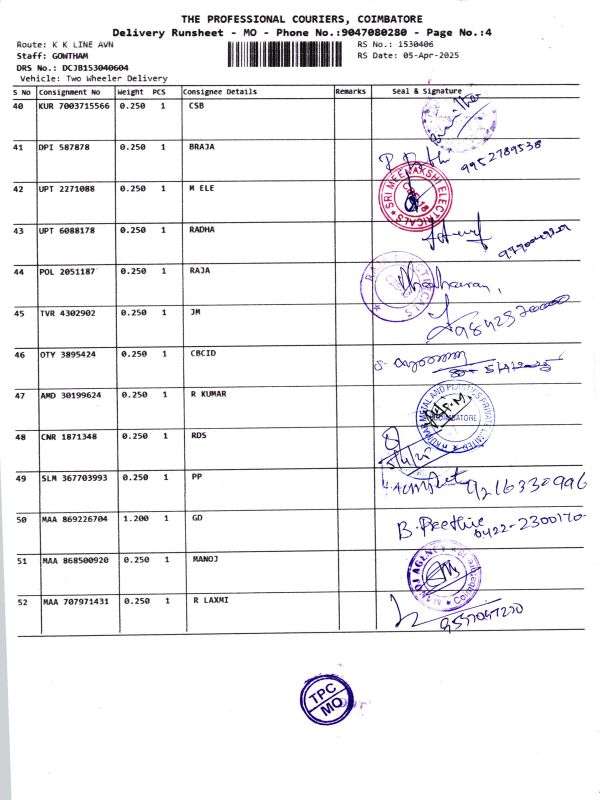 THE PROFESSIONAL COURIERS, COIMBATORE
Delivery Runsheet - MO - Phone No.:9047080280 - Page No.:4
Route: K K LINE AVN
RS No.: 1530406
Staff: GOWTHAM
RS Date: 05-Apr-2025
DRS No.: DCJB153040604
Vehicle: Two Wheeler Delivery
S No Consignment No Weight PCS Consignee Details Remarks Seal & Signature
40 KUR 7003715566 0.250 1 CSB
41 DPI 587878 0.250 1 BRAJA
9952789538
42 UPT 2271088 0.250 1 M ELE
SRI MEENAKSHI ELECTRICALS
43 UPT 6088178 0.250 1 RADHA
44 POL 2051187 0.250 1 RAJA
45 TVR 4302902 0.250 1 JM
46 OTY 3895424 0.250 1 CBCID
47 AMD 30199624 0.250 1 R KUMAR
KUMAR METAL AND PLASTICS PRIVATE LIMITED
COIMBATORE
48 CNR 1871348 0.250 1 RDS
5/4/25
49 SLM 367703993 0.250 1 PP
9216330996
50 MAA 869226704 1.200 1 GD
B. Preethie
0422-2300170
51 MAA 868500920 0.250 1 MANOJ
MANOJ AGENCY
Coimbatore
52 MAA 707971431 0.250 1 R LAXMI
TPC
MO